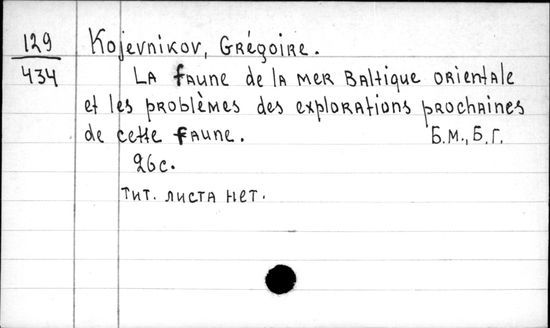 129 Kojevnikov, Grégoire.
434 La faune de la mer Baltique orientale
et les problèmes des explorations prochaines
de cette faune. Б.м., Б.г.
26с.
Тит. листа нет.